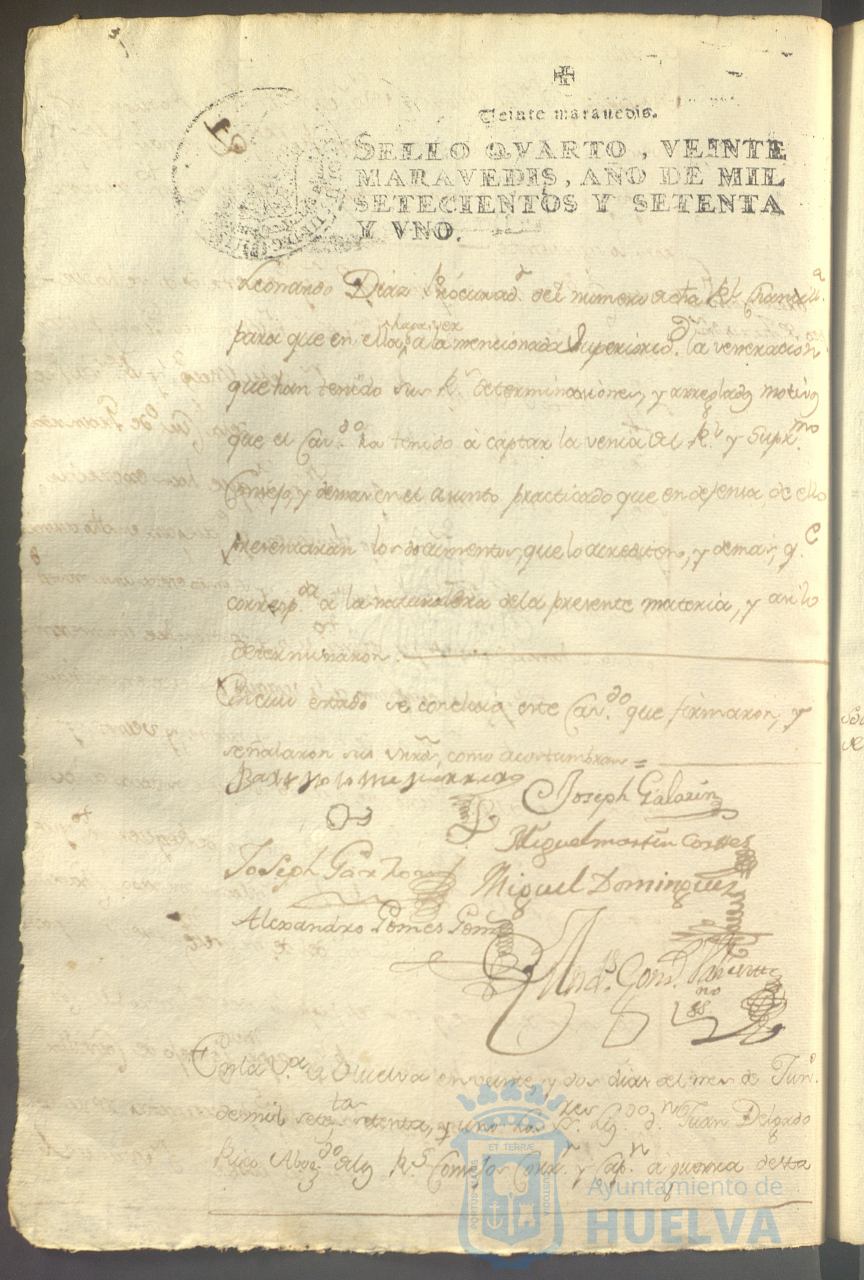 Veinte maravedis.
SELLO QVARTO, VEINTE
MARAVEDIS, AÑO DE MIL
SETECIENTOS Y SETENTA
Y VNO.
Leonardo Diaz Procurad.r del número de dha R.l Chanz.a
para que en ella haga ver a la mencionada Superiorid.d la veneracion
que han tenido sus R.s determinaciones, y arreglados motivos
que el Cav.do ha tenido à captar la venia del R.l y Supr.mo
Consejo, y demas en el asunto practicado que en defensa de ello
presentarán los documentos, que lo acrediten, y demas, q.e
corresp.da à la naturaleza de la presente materia, y asi lo
determinaron.
En cuio estado se concluió este Cav.do que firmaron, y
señalaron sus mrds, como acostumbran =
Joseph Galazin
Miguel martin Cortes
Joseph
Miguel Dominguez
Alexandro Gomes
And.s Gonz.
En la V.a de Huelva en veinte y dos dias del mes de Jun.o
de mil sete.tos setenta, y uno los S.res Liz.do d.n Juan Delgado
Rico Abog.do de los R.s Consejos Corr.r y Cap.n à guerra de esta
PORTUS MARIS
ET TERRÆ
CUSTODIA
Ayuntamiento de
HUELVA